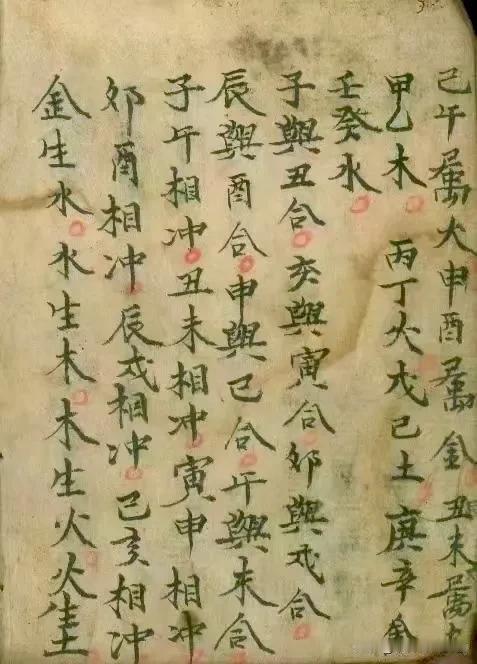 巳午屬火申酉屬金丑未屬
甲乙木丙丁火戊己土庚辛金
壬癸水
子與丑合亥與寅合卯與戌合
辰與酉合申與巳合午與未合
子午相冲丑未相冲寅申相冲
卯酉相冲辰戌相冲巳亥相冲
金生水水生木木生火火生土